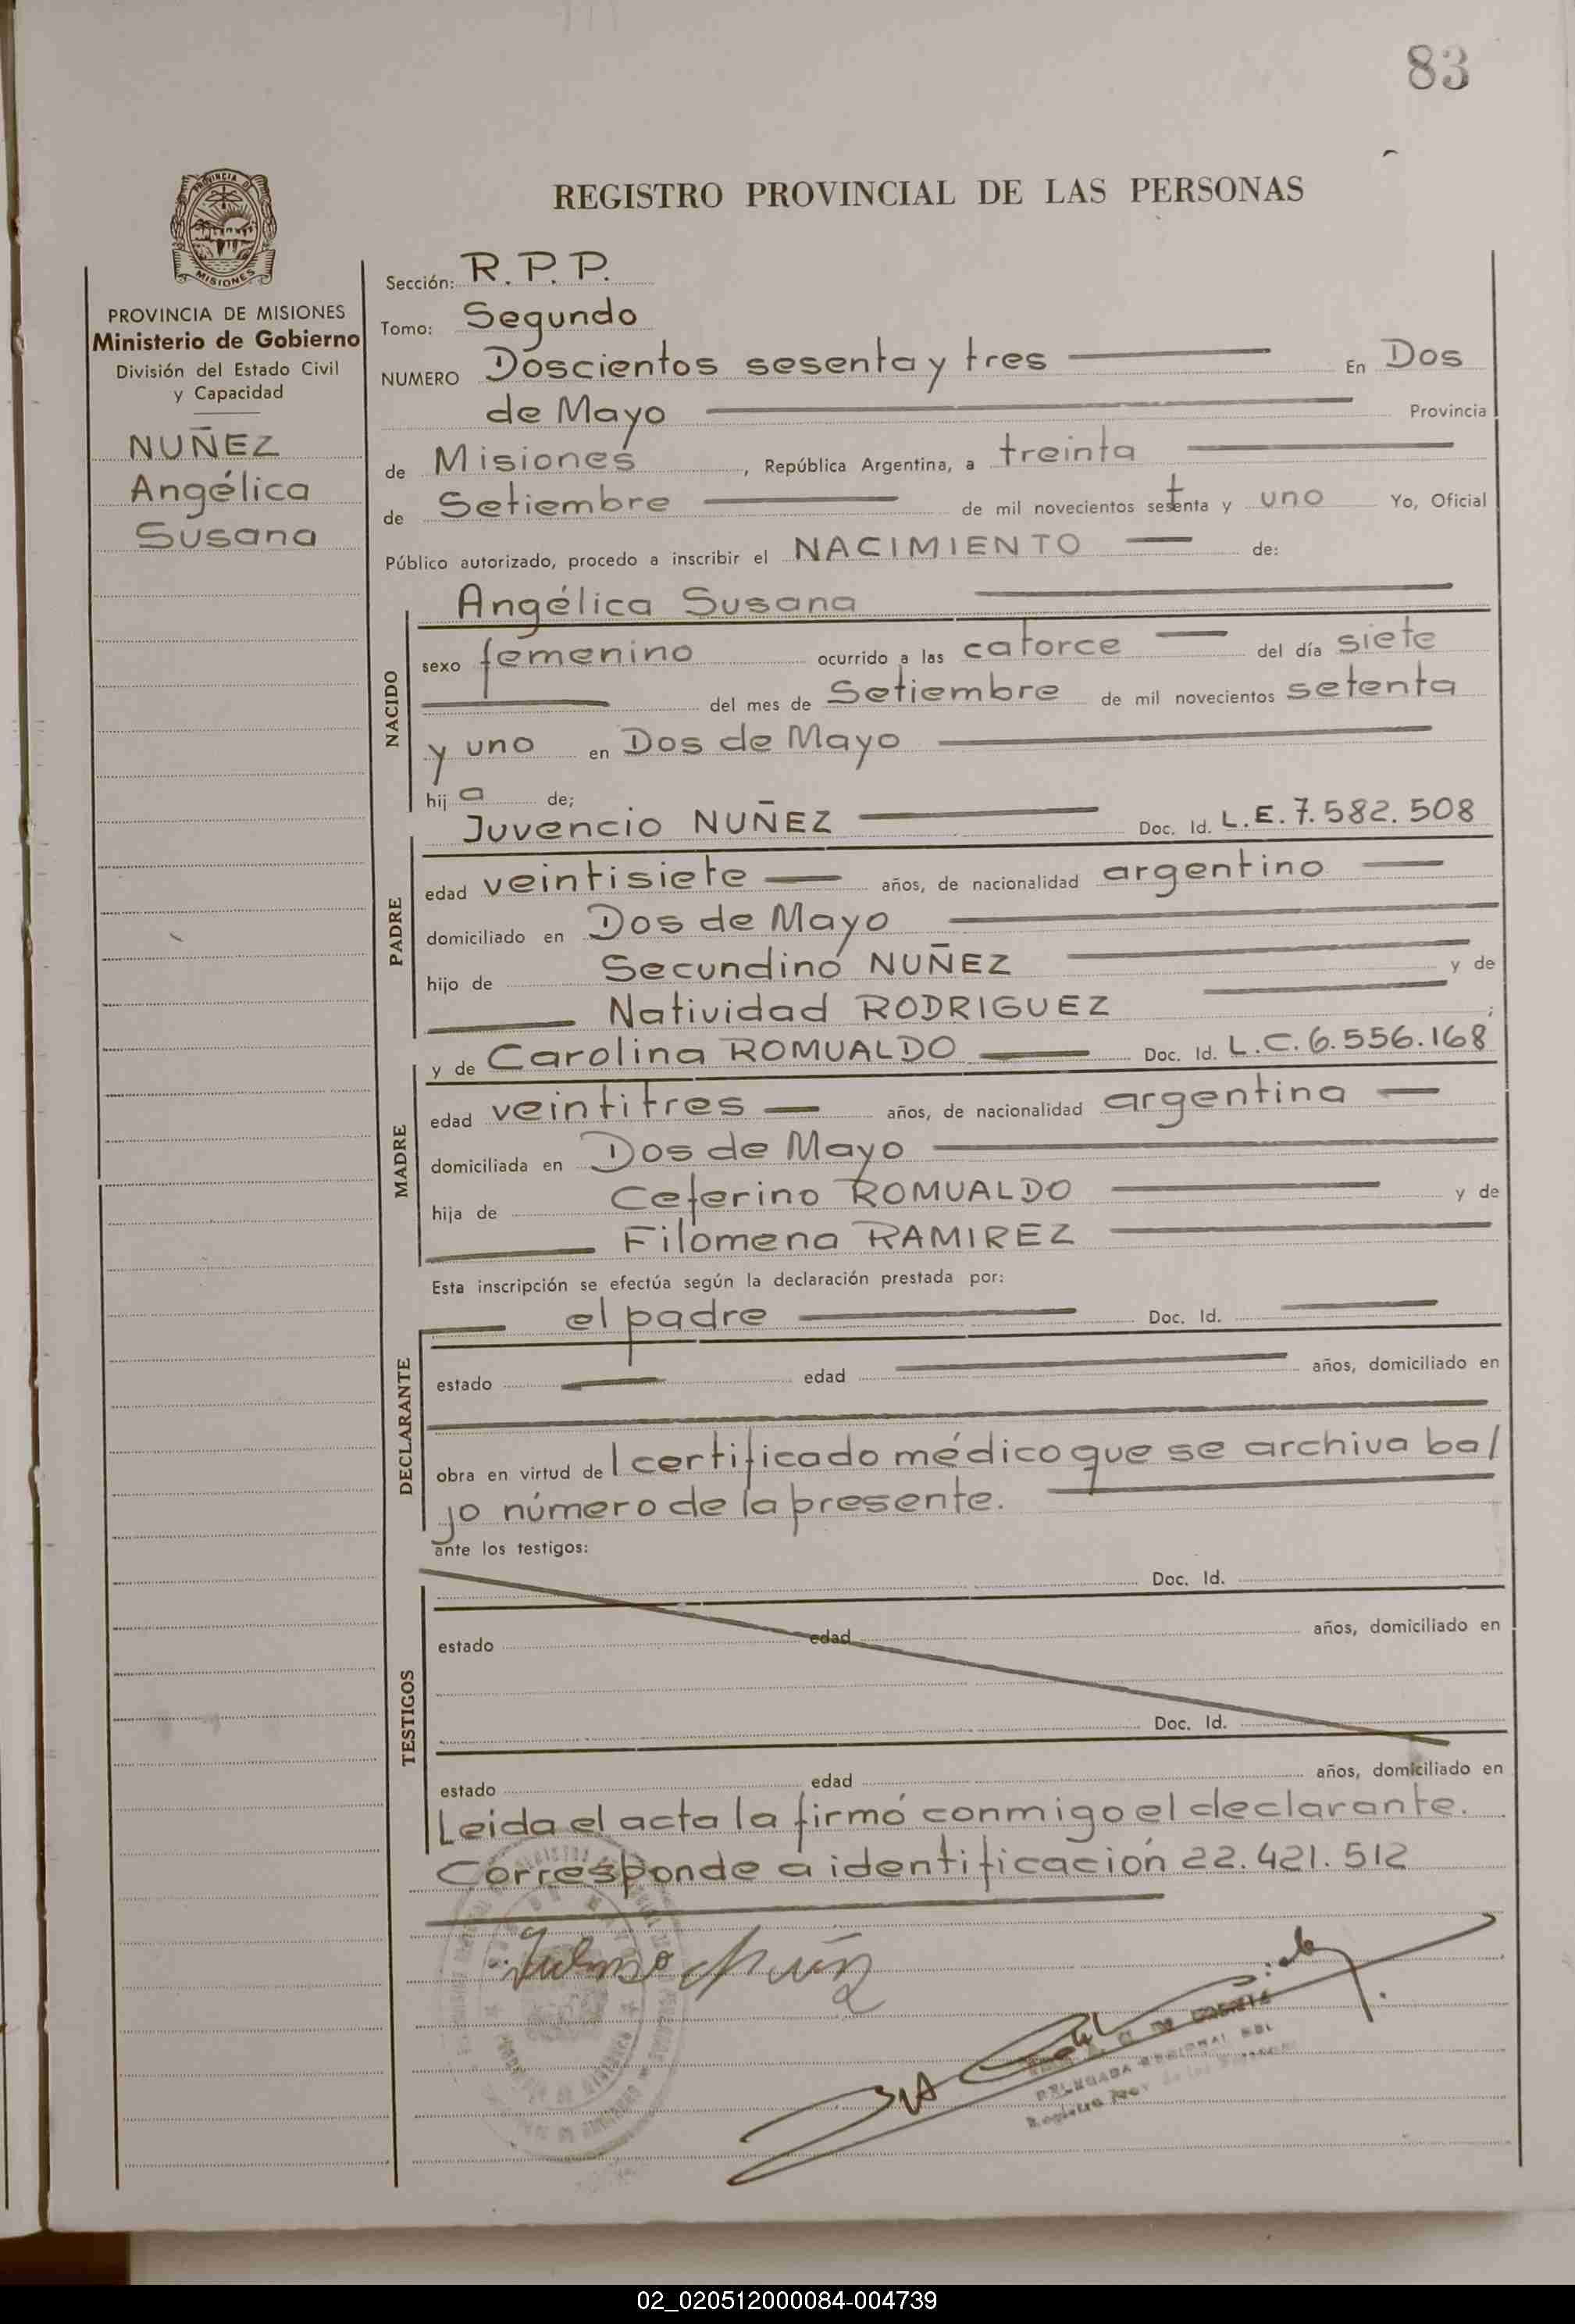 83
REGISTRO PROVINCIAL DE LAS PERSONAS
PROVINCIA DE
MISIONES
PROVINCIA DE MISIONES
Ministerio de Gobierno
División del Estado Civil
y Capacidad
NUÑEZ
Angélica
Susana
Sección: R.P.P.
Tomo: Segundo
NUMERO Doscientos sesenta y tres En Dos
de Mayo Provincia
de Misiones, República Argentina, a treinta
de Setiembre de mil novecientos setenta y uno Yo, Oficial
Público autorizado, procedo a inscribir el NACIMIENTO de:
NACIDO
Angélica Susana
sexo femenino ocurrido a las catorce del día siete
del mes de Setiembre de mil novecientos setenta
y uno en Dos de Mayo
hij a de;
PADRE
Juvencio NUÑEZ Doc. Id. L.E. 7.582.508
edad veintisiete años, de nacionalidad argentino
domiciliado en Dos de Mayo
hijo de Secundino NUÑEZ y de
Natividad RODRIGUEZ ;
MADRE
y de Carolina ROMUALDO Doc. Id. L.C. 6.556.168
edad veintitres años, de nacionalidad argentina
domiciliada en Dos de Mayo
hija de Ceferino ROMUALDO y de
Filomena RAMIREZ
Esta inscripción se efectúa según la declaración prestada por:
DECLARANTE
el padre Doc. Id.
estado edad años, domiciliado en
obra en virtud de l certificado médico que se archiva ba/
jo número de la presente.
ante los testigos:
TESTIGOS
Doc. Id.
estado edad años, domiciliado en
Doc. Id.
estado edad años, domiciliado en
Leida el acta la firmó conmigo el declarante.
Corresponde a identificación 22.421.512
DELEGADA REGIONAL
02_020512000084-004739